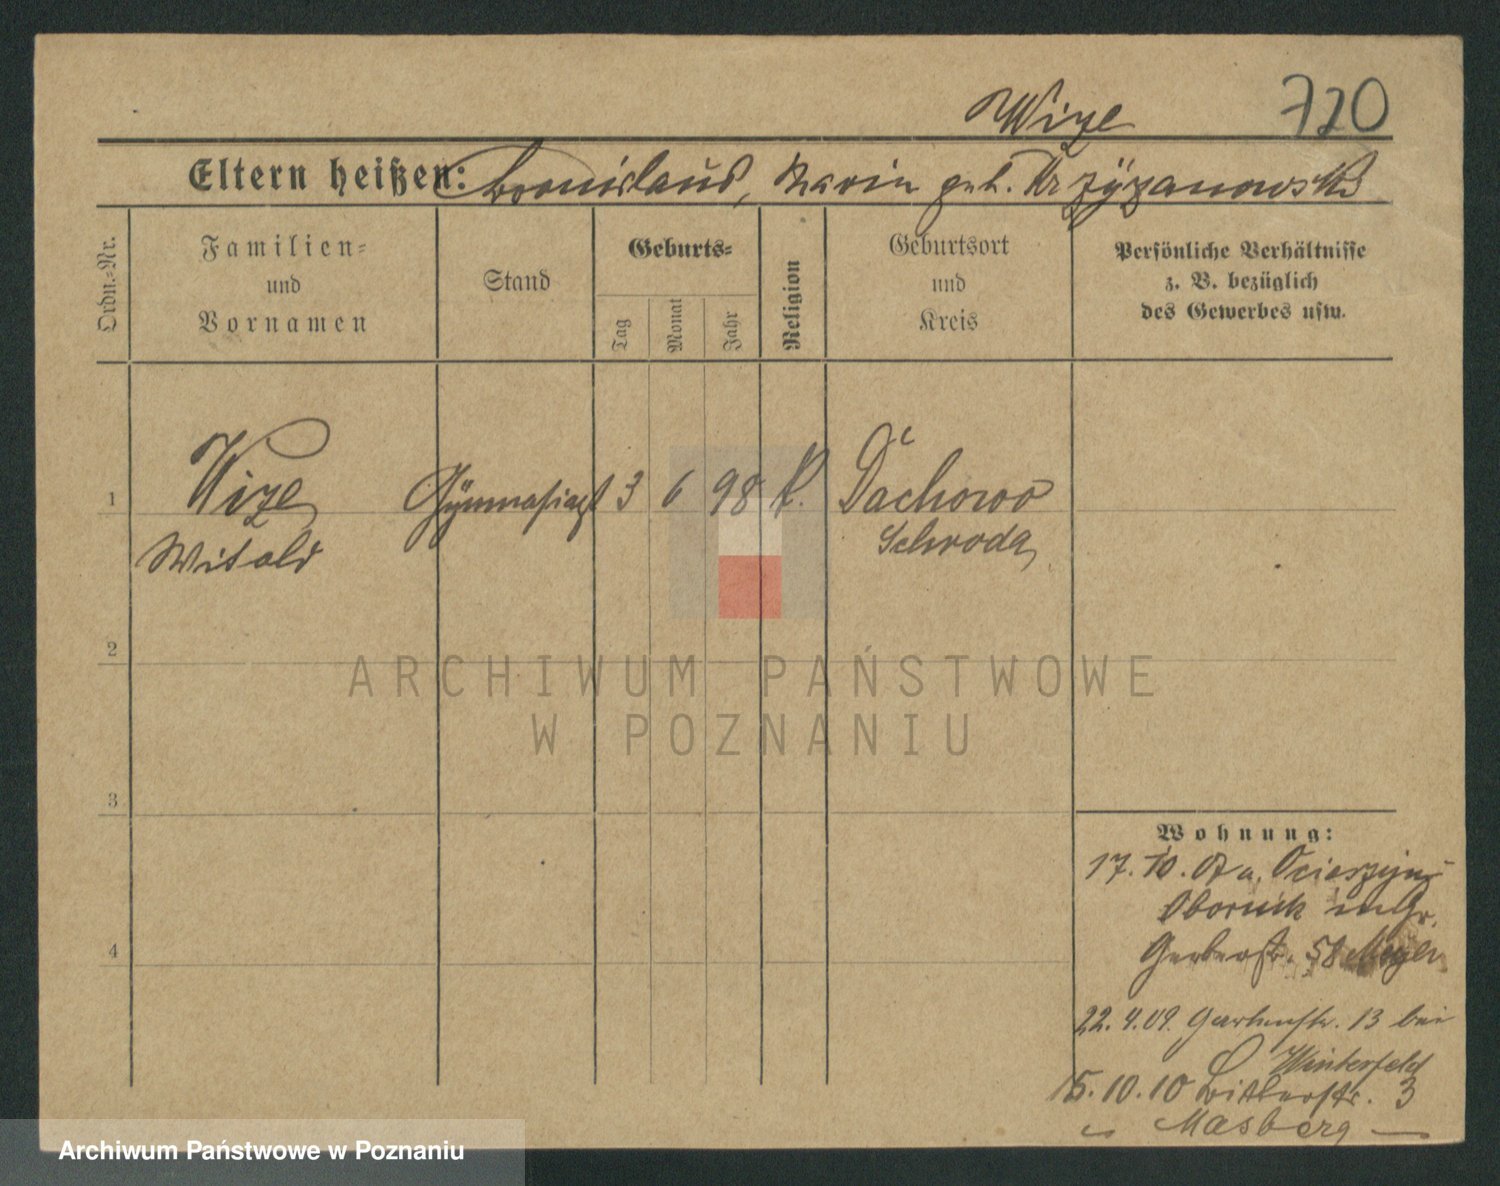 Wize 720
Eltern heißen: Bronislaus, Maria geb. Krzyzanowska
Ordn.-Nr.
Familien-
und
Vornamen
Stand
Geburts-
Tag
Monat
Jahr
Religion
Geburtsort
und
Kreis
Persönliche Verhältnisse
z. B. bezüglich
des Gewerbes usw.
1 Wize Gymnasiast 3 6 98 K. Dachowo
Witold Schroda
2
3
4
Wohnung:
17. 10. 07 a.
Obornik
Gerberstr. 58 Meyer
22. 4. 09. Gartenstr. 13 bei
Winterfeld
5. 10. 10 Bitterstr. 3
Masberg
ARCHIWUM PAŃSTWOWE
W POZNANIU
Archiwum Państwowe w Poznaniu